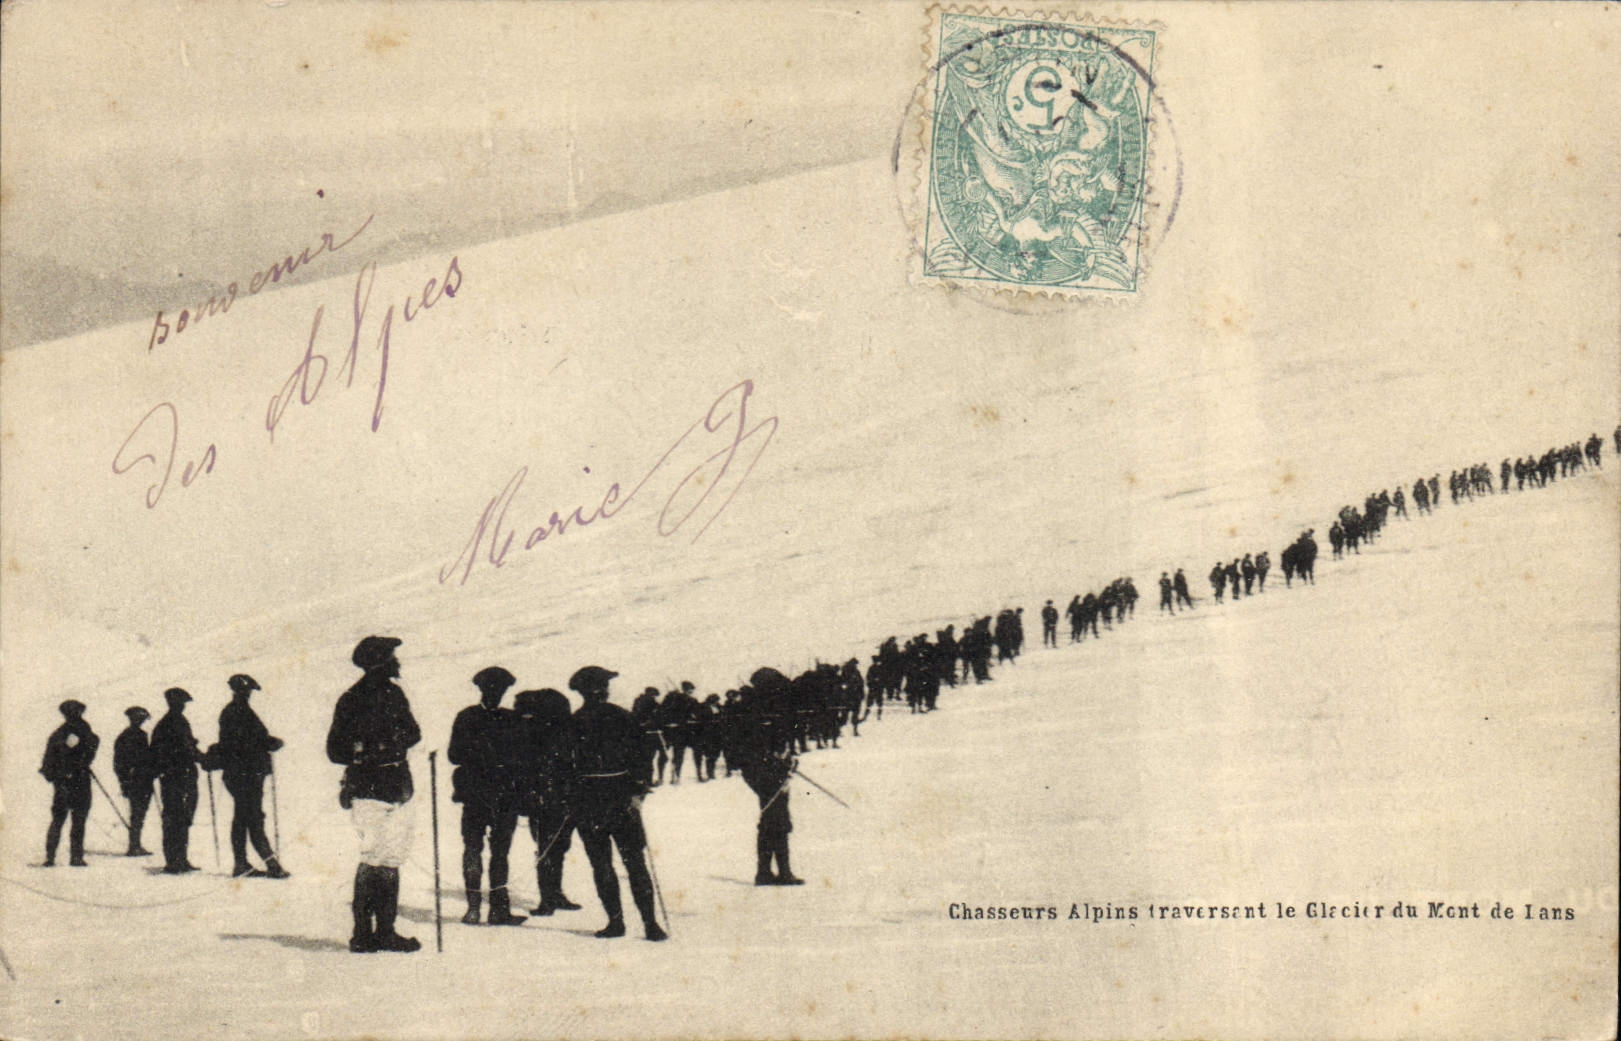 POSTES
5 c.
souvenir
des Alpes
Marie J
Chasseurs Alpins traversant le Glacier du Mont de Lans